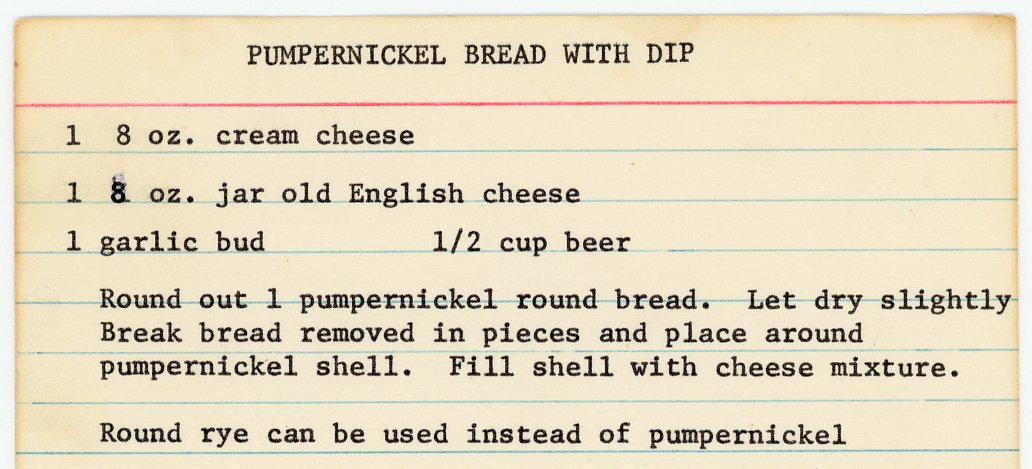 PUMPERNICKEL BREAD WITH DIP
1 8 oz. cream cheese
1 8 oz. jar old English cheese
1 garlic bud 1/2 cup beer
Round out 1 pumpernickel round bread. Let dry slightly
Break bread removed in pieces and place around
pumpernickel shell. Fill shell with cheese mixture.
Round rye can be used instead of pumpernickel